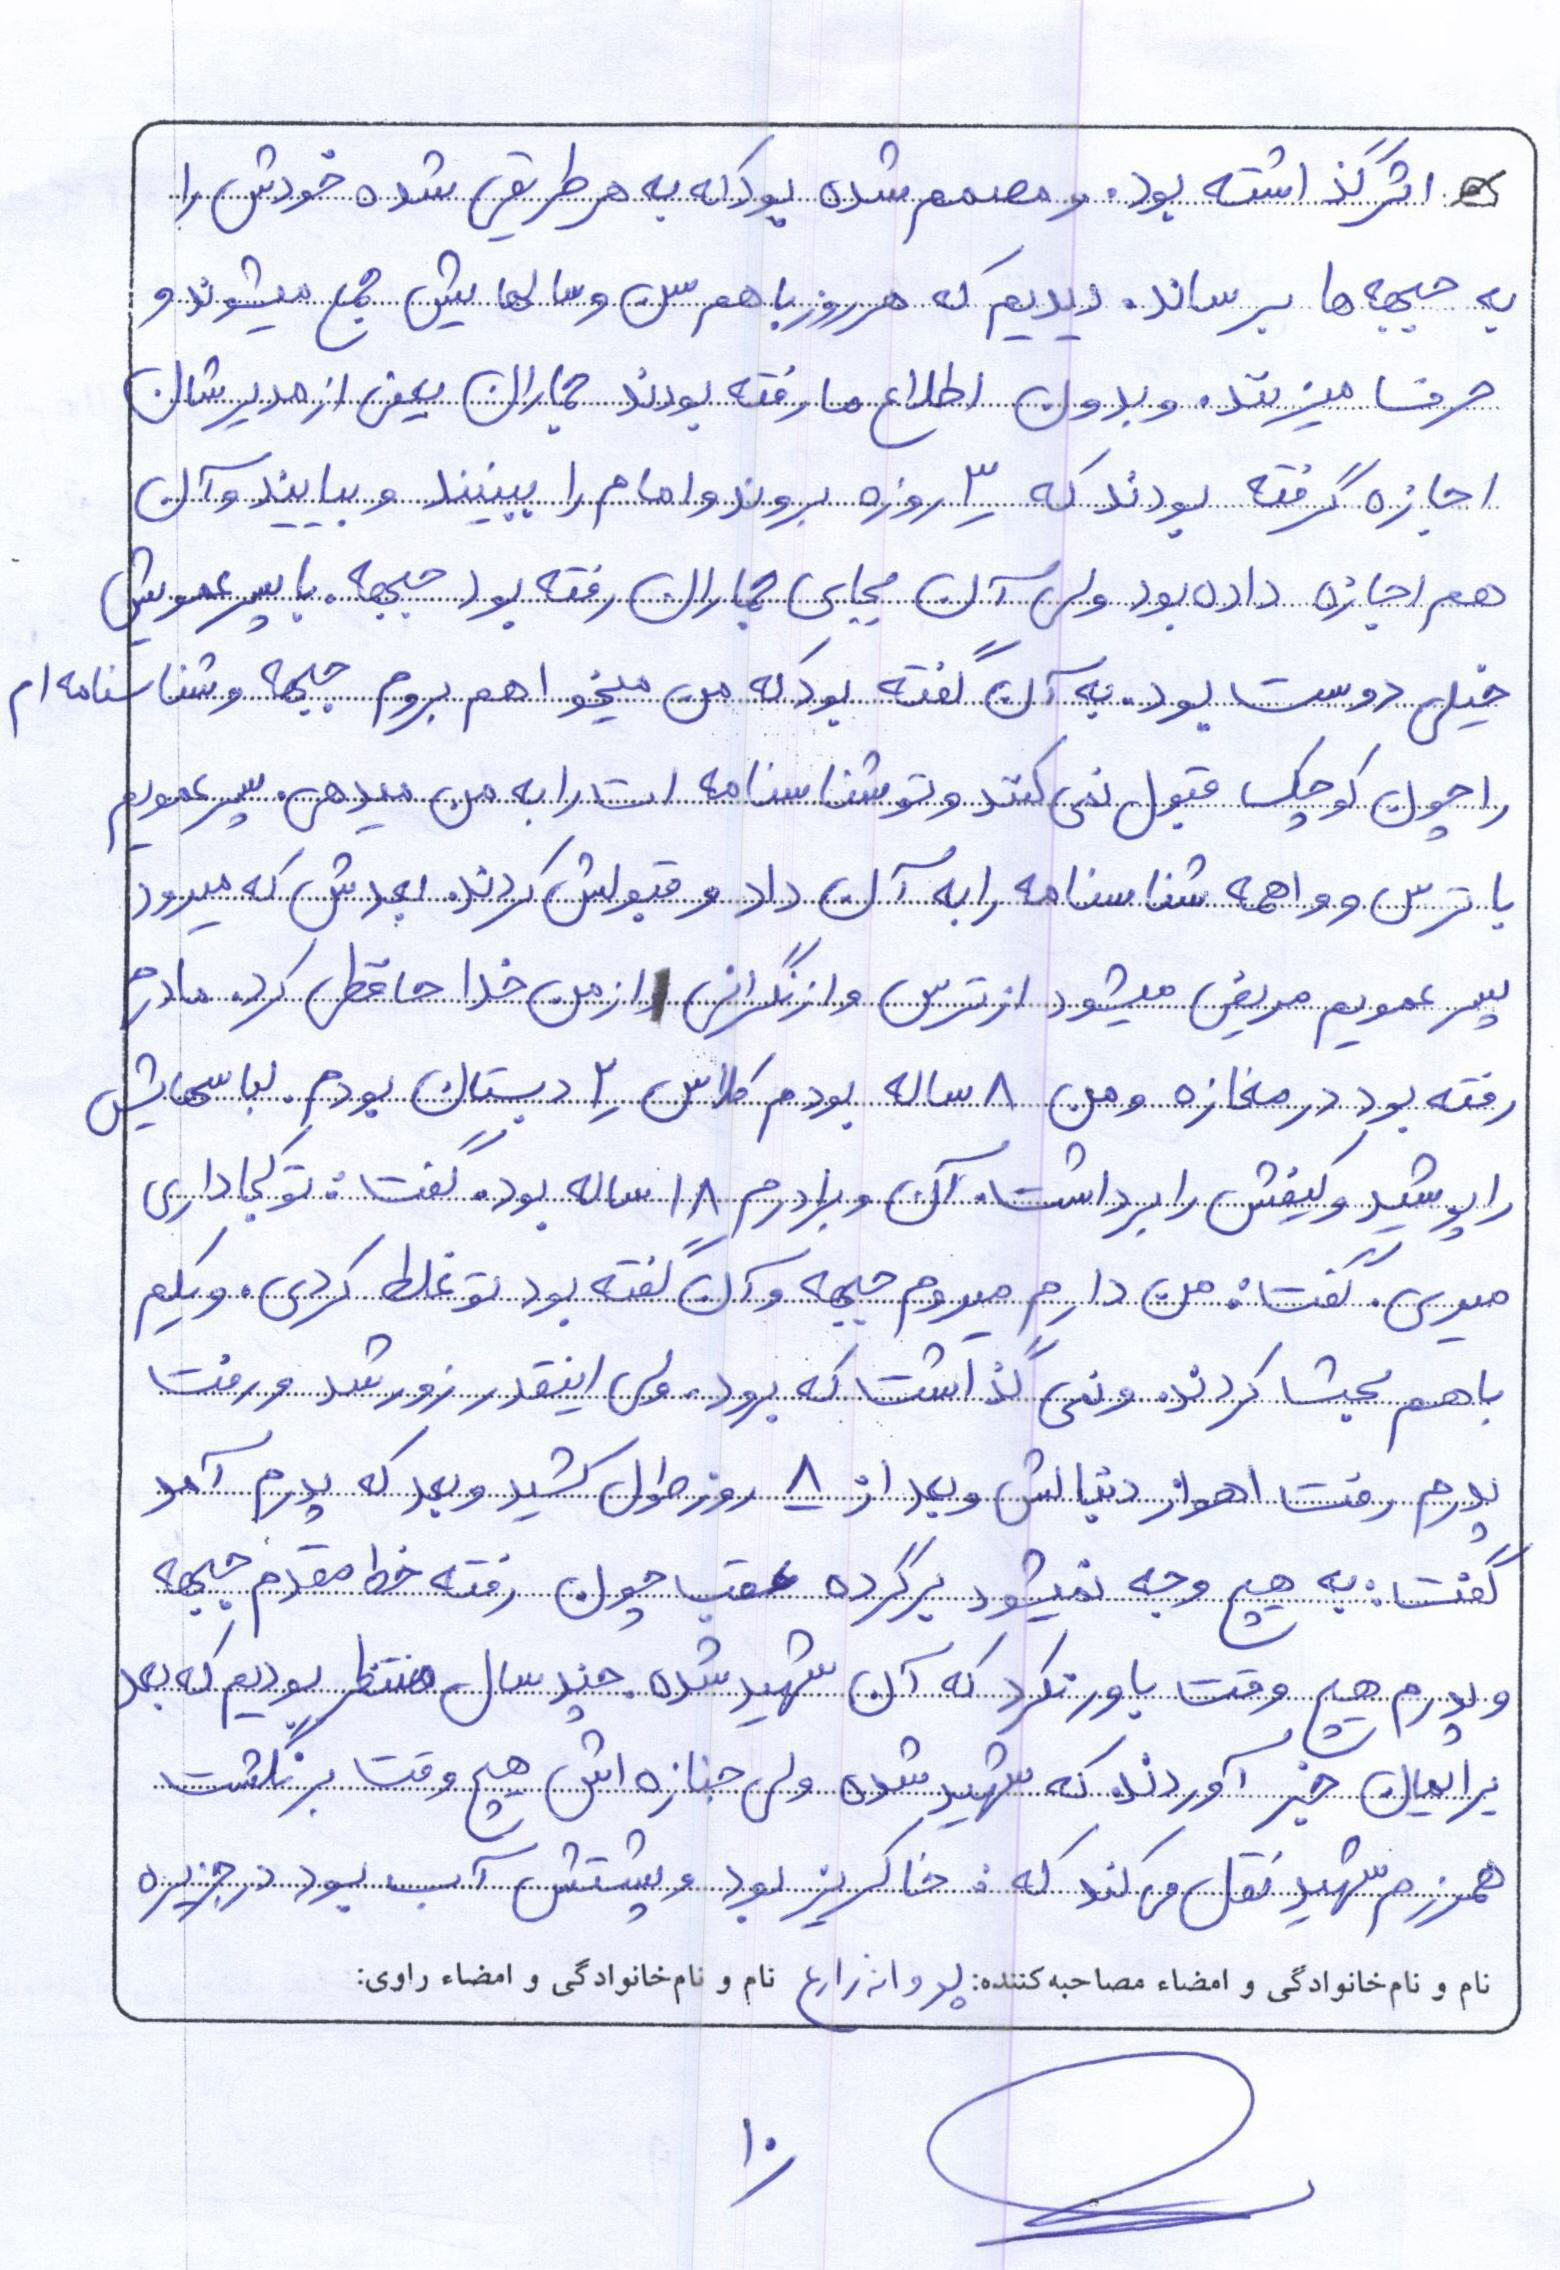 اثر گذاشته بود. و مصمم شده بود که به هر طریقی شده خودش را
به جبهه ها برساند. دیدیم که هر روز با هم سن و سالهایش جمع میشوند و
حرف میزنند. و بدون اطلاع ما رفته بودند جماران یعنی از مدیرشان
اجازه گرفته بودند که ۳ روزه بروند و امام را ببینند و بیایند و آن
هم اجازه داده بود ولی آن بجای جماران رفته بود جبهه. با پسرعمویش
خیلی دوست بود. به آن گفته بود که من میخواهم بروم جبهه و شناسنامه ام
را چون کوچک قبول نمی کنند و تو شناسنامه ات را به من میدهی. پسرعمویم
با ترس و واهمه شناسنامه را به آن داد و قبولش کردند. بعدش که میرود
پسرعمویم مریض میشود از ترس و از نگرانی از من خداحافظی کرد. مادرم
رفته بود در مغازه و من ۸ ساله بودم کلاس ۲ دبستان بودم. لباسهایش
را پوشید و کیفش را برداشت. آن و برادرم ۱۸ ساله بود. گفت: تو کجا داری
میری. گفت: من دارم میروم جبهه و آن گفته بود تو غلط کردی. و یکم
با هم بحث کردند. و نمی گذاشت که برود. ولی اینقدر زور شد و رفت
پدرم رفت اهواز دنبالش و بعد از ۸ روز طول کشید و بعد که پدرم آمد
گفت: به هیچ وجه نمیشود برگرده عقب چون رفته خط مقدم جبهه
و پدرم هیچ وقت باور نکرد که آن شهید شده. چند سال منتظر بودیم که بعد
برایمان خبر آوردند که شهید شده ولی جنازه اش هیچ وقت برنگشت
همرزم شهید نقل می کند که: خاکریز بود و پشتش آب بود در جزیره
نام و نام‌خانوادگی و امضاء مصاحبه‌کننده: پروانه زارع نام و نام‌خانوادگی و امضاء راوی:
۱۰